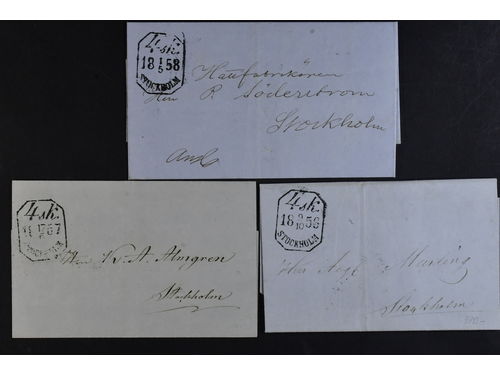 4 sk:
18 1/5 58
STOCKHOLM
Hattfabrikören
Herr P. Söderström
Stockholm
4 sk:
STOCKHOLM
Herr K. A. Almgren
Stockholm
4 sk:
18 9/10 56
STOCKHOLM
Herr Aug
Stockholm